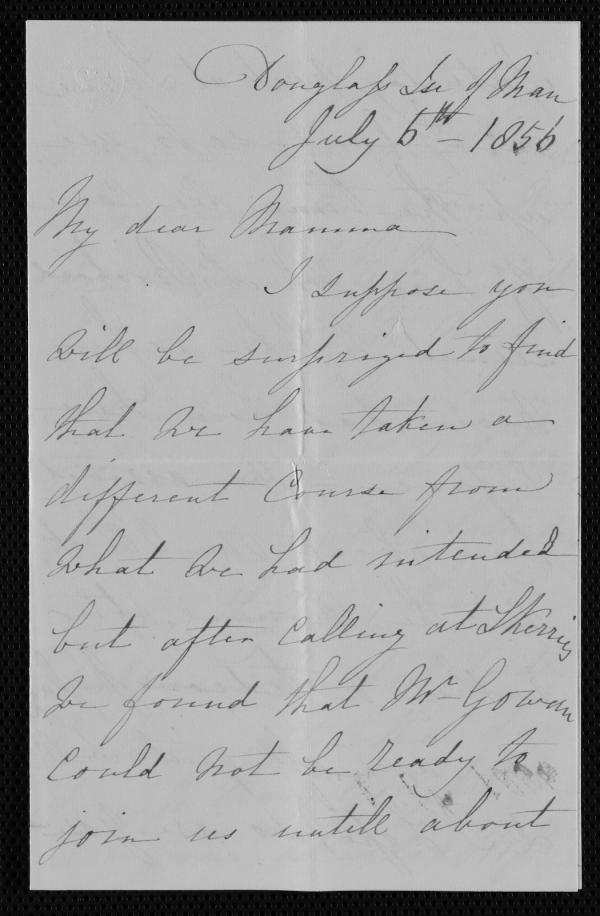 Douglass Isle of Man
July 6th - 1856
My dear Mamma
I suppose you
will be surprized to find
that we have taken a
different Course from
what we had intended
but after Calling at Skerries
we found that Mr Gowan
Could not be ready to
join us untill about